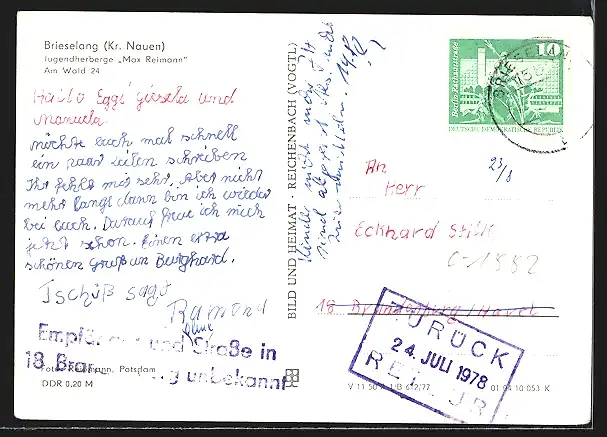 Brieselang (Kr. Nauen)
Jugendherberge „Max Reimann“
Am Wald 24
Hallo Eggi Gisela und
Manuela
möchte euch mal schnell
ein paar Zeilen schreiben
Ihr fehlt mir sehr. Aber nicht
mehr lange dann bin ich wieder
bei euch. Darauf freue ich mich
jetzt schon. Einen extra
schönen Gruß an Burghard.
Tschüß sagt
Ramona
Empfänger und Straße in
18 Bran unbekannt
Foto: Reißmann, Potsdam
DDR 0,20 M
BILD UND HEIMAT · REICHENBACH (VOGTL)
Kinder nicht mehr
sind als
14
Berlin, Rathausstraße
DEUTSCHE DEMOKRATISCHE REPUBLIK
BRIESELANG
23/8
An
Herr
Eckhard Stük
C-1882
18 Brandenburg/Havel
ZURÜCK
24. JULI 1978
RETOUR
V 11 50 A 1/B 612/77
01 04 10 053 K